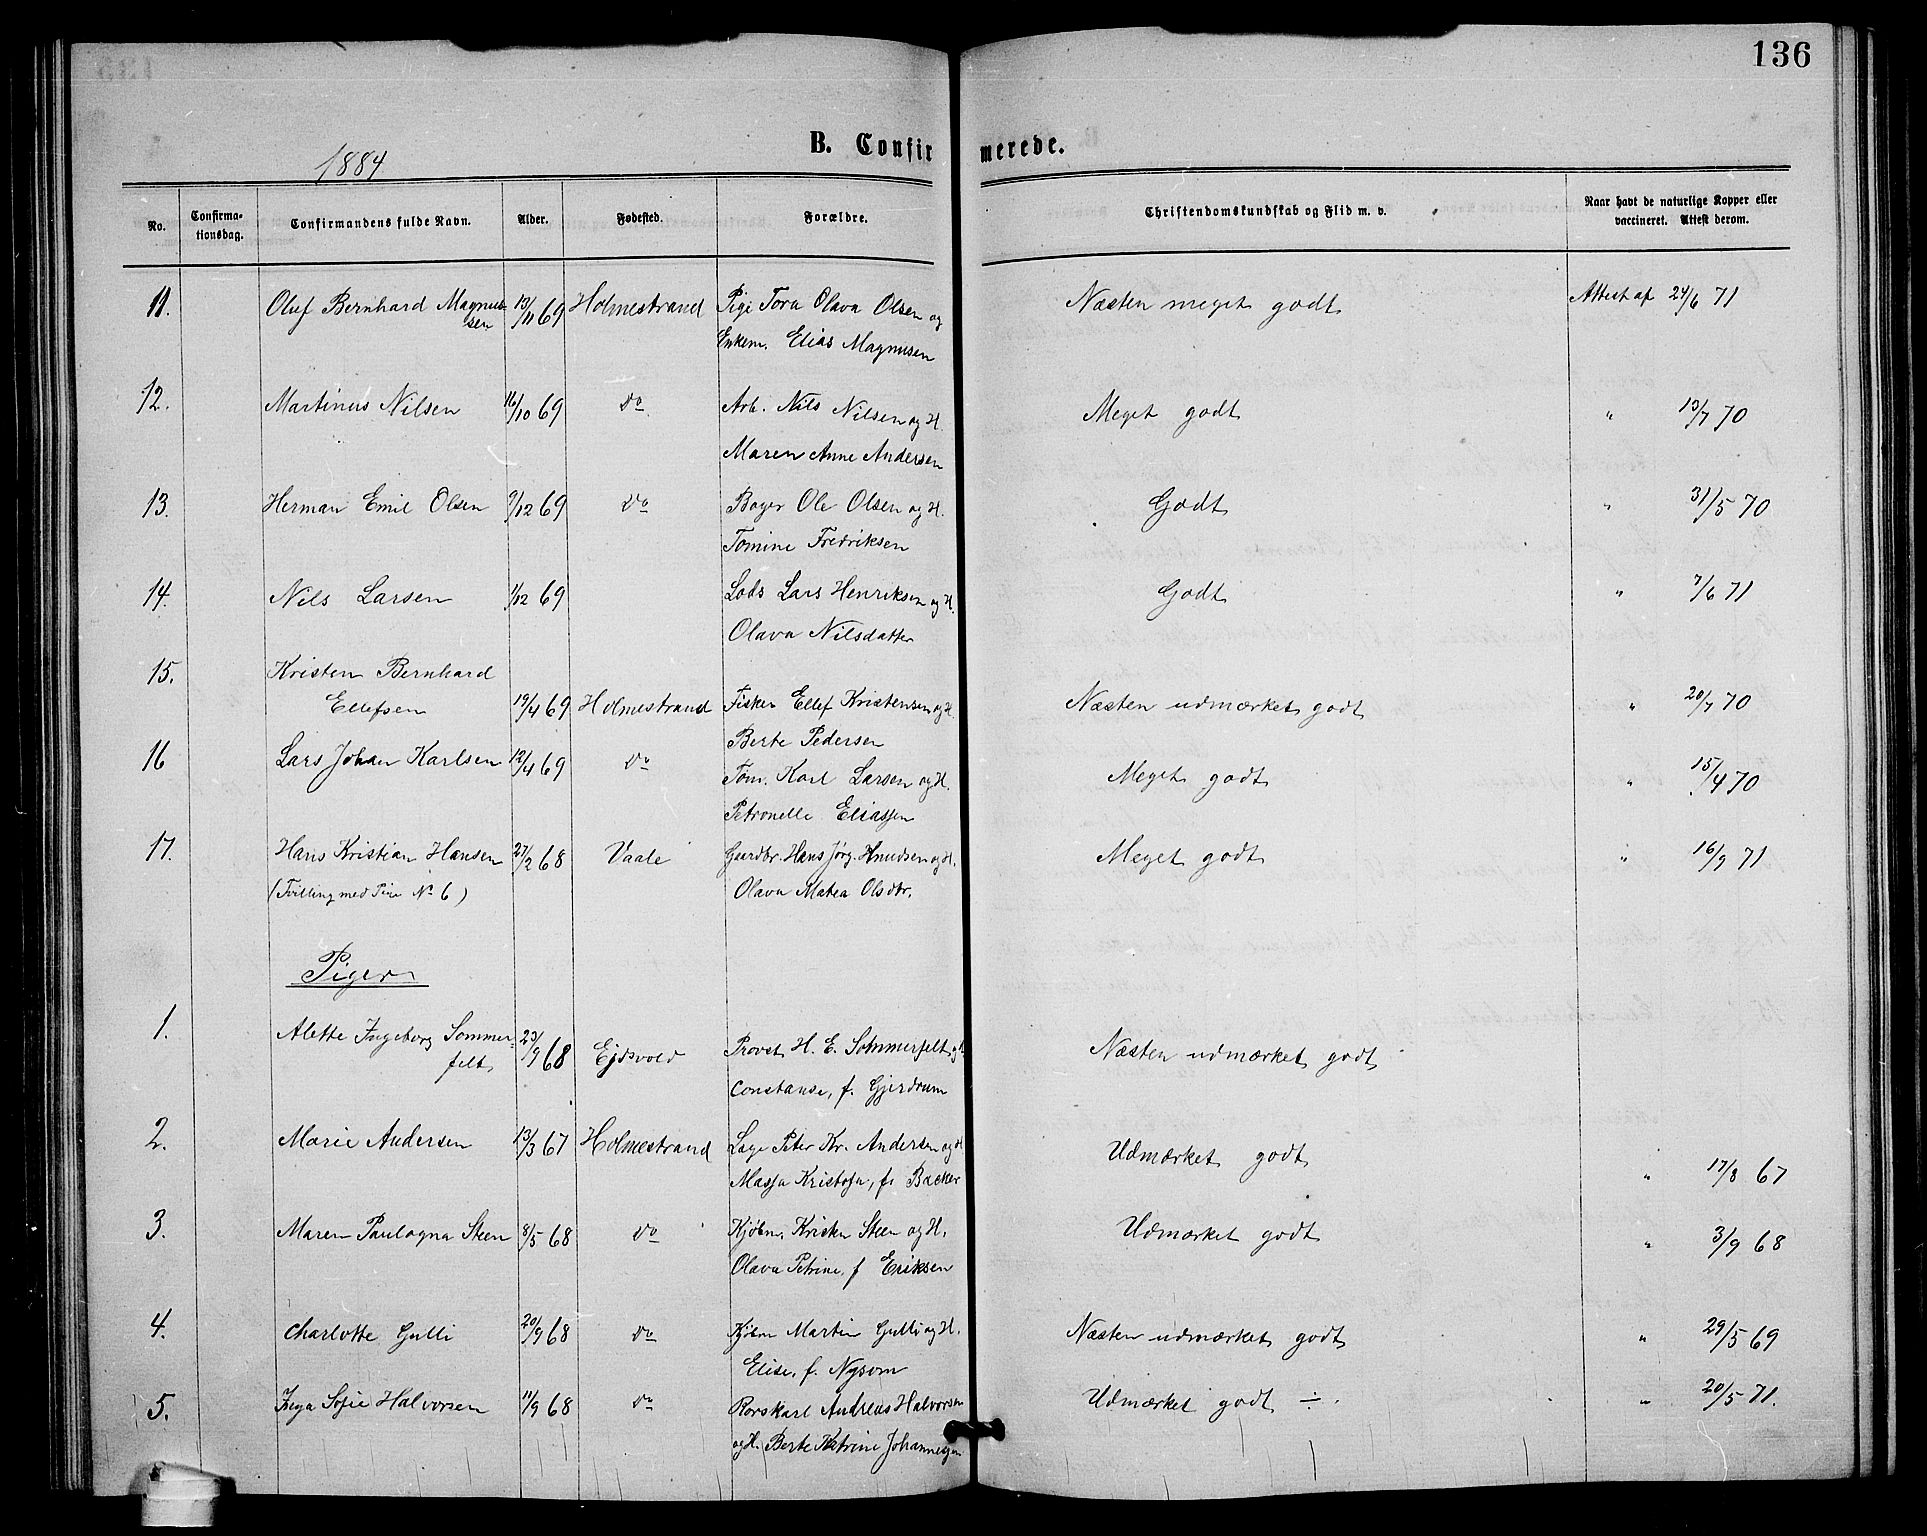 136
B. Confirmerede.
1884
No. Confirmationsdag. Confirmandens fulde Navn. Alder. Fødested. Forældre. Christendomskundskab og Flid m. v. Naar havt de naturlige Kopper eller vaccineret. Attest derom.
11. Oluf Bernhard Magnus- 13/11 69 Holmestrand Pige Tora Olava Olsen og Næsten meget godt Attest af 24/6 71
sen Enkem. Elias Magnusen
12. Martinus Nilsen 16/10 69 do Arb. Nils Nilsen og H. Meget godt " 13/7 70
Maren Anne Andersen
13. Herman Emil Olsen 9/12 69 do Bager Ole Olsen og H. Godt " 31/5 70
Tomine Fredriksen
14. Nils Larsen 1/12 69 Lods Lars Henriksen og H. Godt " 7/6 71
Olava Nilsdatter
15. Kristen Bernhard
Ellefsen 19/4 69 Holmestrand Fisker Ellef Kristensen og H. Næsten udmærket godt " 20/7 70
Berte Pedersen
16 Lars Johan Karlsen 12/4 69 do Tøm. Karl Larsen og H. Meget godt " 15/4 70
Petronelle Eliassen
17. Hans Kristian Hansen 27/2 68 Vaale Gaardbr. Hans Jørg. Knudsen og H. Meget godt " 16/9 71
(Tvilling med Pige No 6) Olava Matea Olsdtr.
Piger
1. Alette Ingeborg Sommer- 23/9 68 Ejdsvold Provst H. E. Sommerfelt og Næsten udmærket godt
felt Constanse, f. Gjerdrum
2. Marie Andersen 13/3 67 Holmestrand Læge Peter Kr. Andersen og H Udmærket godt " 17/8 67
Massa Kristofa, f. Backer
3. Maren Paulagna Steen 8/5 68 do Kjøbm. Kristen Steen og H. Udmærket godt " 3/9 68
Olava Petrine, f Eriksen
4. Charlotte Gulli 20/9 68 do Kjøbm Martin Gulli og H. Næsten udmærket godt " 29/5 69
Elise, f. Nysom
5. Inga Sofie Halvorsen 11/9 68 do Rorskarl Andreas Halvorsen Udmærket godt ÷ " 20/5 71.
og H. Berte Katrine Johannesen